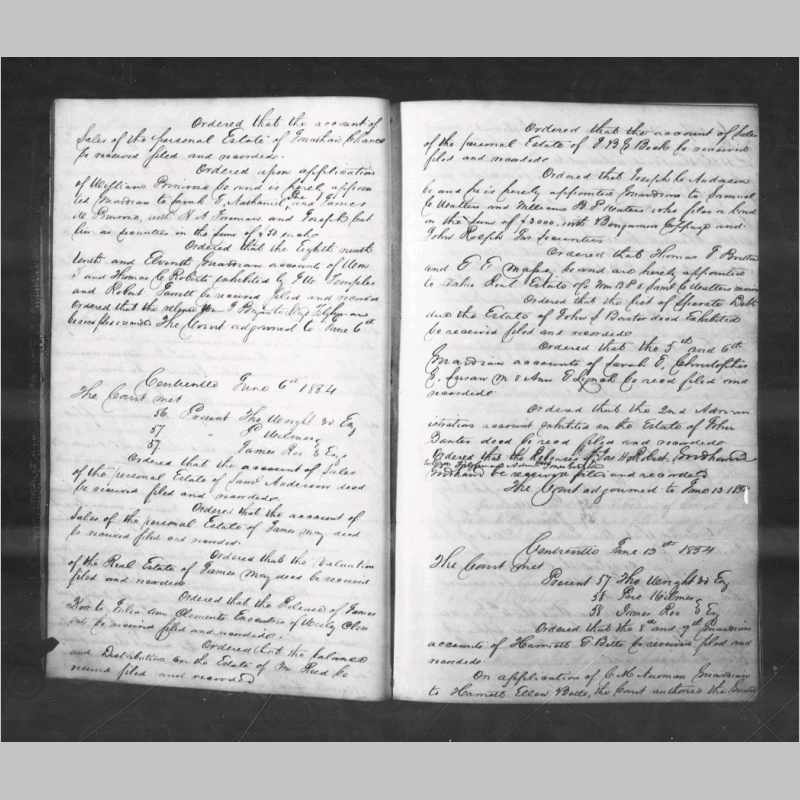 Ordered that the account of
Sales of the personal Estate of Jonathan Chance
be received filed and recorded.
Ordered upon application
of William Primrose be and is hereby appoin
ted Guardian to Sarah E, Nathaniel, and James
M Primrose, with N. A.
as securities in the sum of $50 each
Ordered that the Eighth ninth
tenth and Eleventh Guardian accounts of Wm
J and Thomas C. Roberts exhibited by J W Temples
and Robert Jarrell be received filed and recorded
Ordered that the
The Court adjourned to June 6th
Centreville June 6th 1854
The Court met
56 Present Tho Wright 3d Esq
57 " P Wilmer
57 James Roe 3 Esqs
Ordered that the account of Sales
of the personal Estate of Saml Anderson decd
be received filed and recorded.
Ordered that the account of
Sales of the personal Estate of James May decd
be received filed and recorded.
Ordered that the Valuation
of the Real Estate of James May decd be received
filed and recorded
Ordered that the Release of James
to Julia Ann Clements Executrix of
be received filed and recorded.
Ordered that the balance
and Distribution on the Estate of Reed be
received filed and recorded
Ordered that the account of Sales
of the personal Estate of J. B. E Beck be received
filed and recorded
Ordered that Joseph C. Anderson
be and he is hereby appointed Guardian to Samuel
C Walters and William B. P. Walters who files a bond
in the sum of $3000. with Benjamin Coppage and
John Rolph Jnr Securities
Ordered that Thomas F Bratten
and E. E. Massey be and are hereby appointed
to value Real Estate of Wm B P & Saml C. Walters minors
Ordered that the list of Sperate Debts
due the Estate of John S Baxter decd Exhibited
be received filed and recorded
Ordered that the 5th and 6th
Guardian accounts of Sarah E, Christopher
E, Susan M & Ann E Lynch be read filed and
recorded
Ordered that the 2nd Admin
istration account exhibited on the Estate of John
Baxter decd be read filed and recorded
Ordered that the Releases of H Roberts, Goodhand
Goodhand be received filed and recorded
The Court adjourned to June 13 1854
Centreville June 13th 1854
The Court met
Present 57 Tho Wright 3d Esq
58 Pere Wilmer
58 James Roe 3 Esqs
Ordered that the 8th and 9th Guardian
accounts of Harriett E Betts be received filed and
recorded
On application of C. M. Newman Guardian
to Harriett Ellen Betts, the Court authorize the Guardn